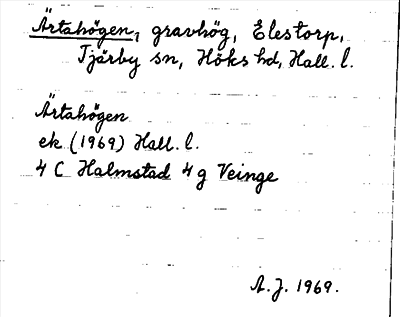 Ärtahögen, gravhög, Elestorp,
Tjärby sn, Höks hd, Hall. l.
Ärtahögen
ek (1969) Hall. l.
4 C Halmstad 4 g Veinge
A.J. 1969.